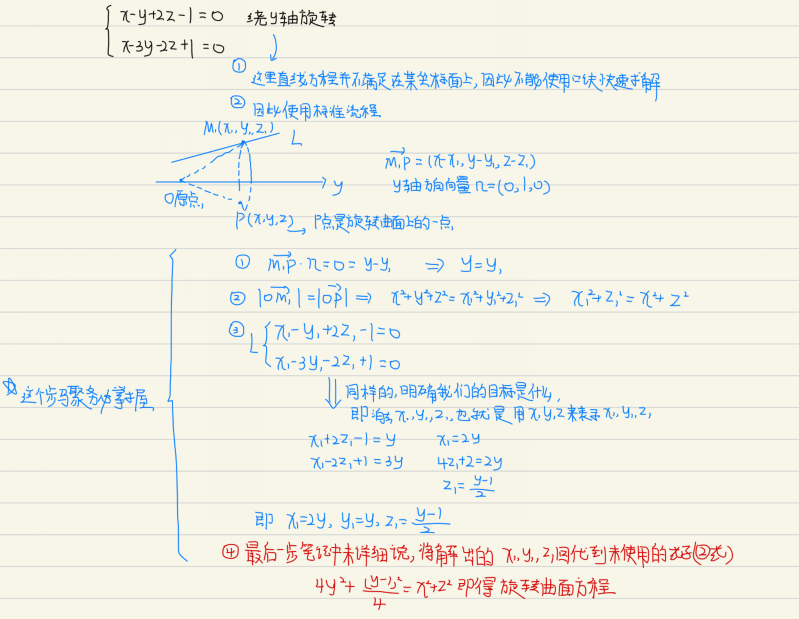 { x-y+2z-1=0
x-3y-2z+1=0
绕y轴旋转
① 这里直线方程并不满足在某坐标面上,因此不能使用口诀快速求解
② 因此使用标准流程
M₁(x₁,y₁,z₁)
L
y
O原点
P(x,y,z) → P点是旋转曲面上的一点
M₁P=(x-x₁,y-y₁,z-z₁)
y轴方向向量n=(0,1,0)
① M₁P·n=0=y-y₁ ⇒ y=y₁
② |OM₁|=|OP| ⇒ x²+y²+z²=x₁²+y₁²+z₁² ⇒ x₁²+z₁²=x²+z²
③ L { x₁-y₁+2z₁-1=0
x₁-3y₁-2z₁+1=0
☆ 这个步骤务必掌握
同样的,明确我们的目标是什么,
即消x₁,y₁,z₁.也就是用x,y,z来表示x₁,y₁,z₁
x₁+2z₁-1=y x₁=2y
x₁-2z₁+1=3y 4z₁+2=2y
z₁=(y-1)/2
即 x₁=2y, y₁=y, z₁=(y-1)/2
④ 最后一步笔记中未详细说,将解出的x₁,y₁,z₁回代到未使用的式子(②式)
4y²+(y-1)²/4=x²+z² 即得旋转曲面方程